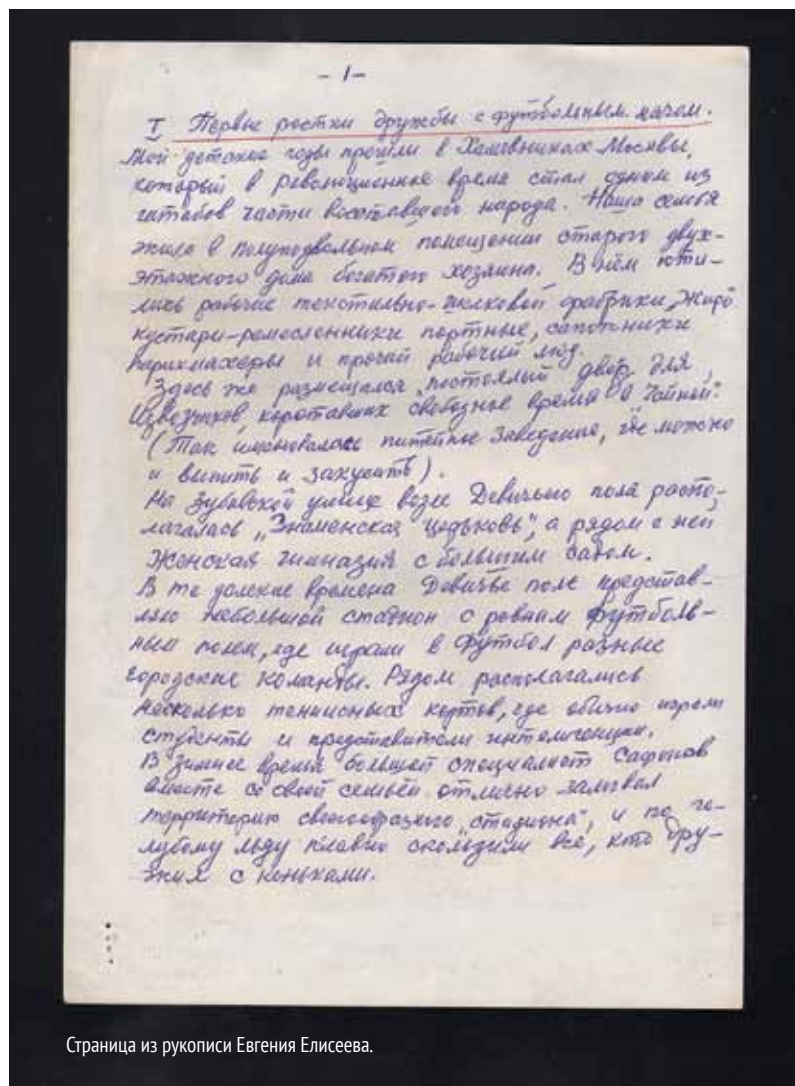 - 1 -
I Первые ростки дружбы с футбольным мячом.
Мои детские годы прошли в Хамовниках Москвы,
который в революционное время стал одним из
штабов части восставшего народа. Наша семья
жила в полуподвальном помещении старого двух-
этажного дома богатого хозяина. В нём юти-
лись рабочие текстильно-шелковой фабрики „Жиро
кустари-ремесленники портные, сапожники
парикмахеры и прочий рабочий люд.
Здесь же размещался „постоялый двор для
извозчиков, коротавших свободное время в „Чайной".
(Так именовалось питейное заведение, где можно
и выпить и закусить).
На Зубовской улице возле Девичьего поля распо-
лагалась „Знаменская церковь", а рядом с ней
Женская гимназия с большим садом.
В те далекие времена Девичье поле представ-
ляло небольшой стадион с ровным футболь-
ным полем, где играли в футбол разные
городские команды. Рядом располагались
несколько теннисных кортов, где обычно играли
студенты и представители интелигенции.
В зимнее время большой специалист Сафонов
вместе со своей семьёй отлично заливал
территорию своеобразного „стадиона", и по го-
лубому льду плавно скользили все, кто дру-
жил с коньками.
Страница из рукописи Евгения Елисеева.